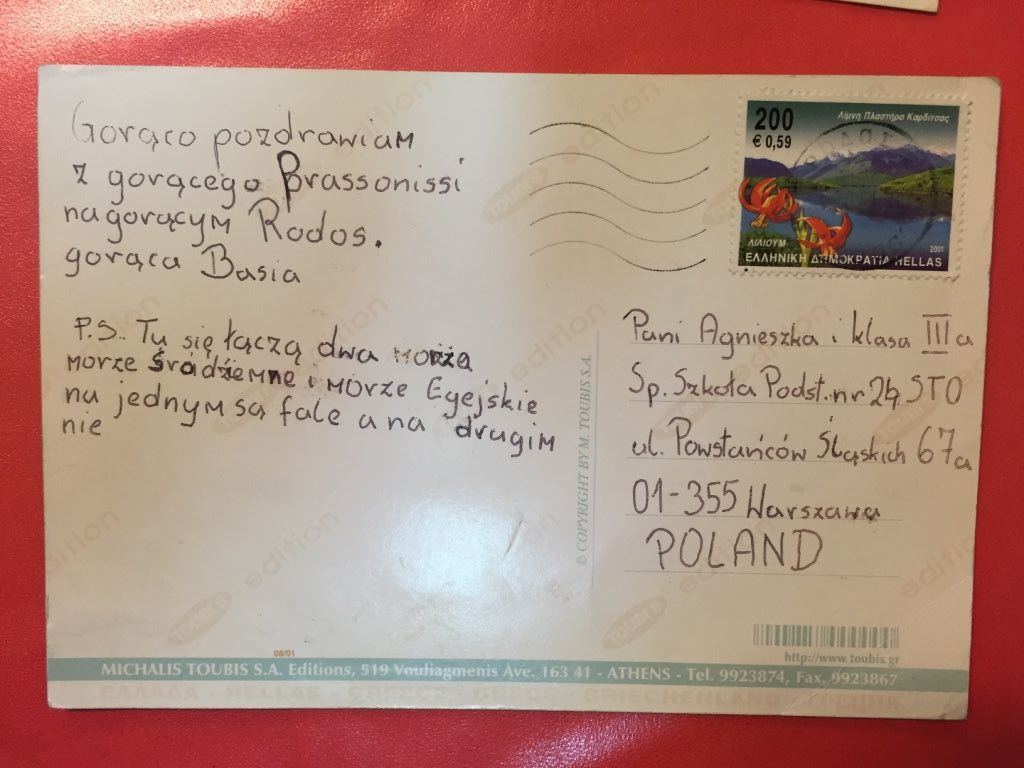 Gorąco pozdrawiam
z gorącego Brassonissi
na gorącym Rodos.
gorąca Basia
P.S. Tu się łączą dwa morza
morze śródziemne i morze Egejskie
na jednym są fale a na drugim
nie
200
€ 0,59
Λίμνη Πλαστήρα Καρδίτσας
ΛΙΛΙΟΥΜ
2001
ΕΛΛΗΝΙΚΗ ΔΗΜΟΚΡΑΤΙΑ HELLAS
Pani Agnieszka i klasa III a
Sp. Szkoła Podst. nr 24 STO
ul. Powstańców Śląskich 67a
01-355 Warszawa
POLAND
© COPYRIGHT BY M. TOUBIS S.A.
http://www.toubis.gr
08/01
MICHALIS TOUBIS S.A. Editions, 519 Vouliagmenis Ave. 163 41 - ATHENS - Tel. 9923874, Fax. 9923867
ΕΛΛΑΔΑ - HELLAS - GREECE - GRECE - GRIECHENLAND - ГРЕЦИЯ
TOUBIS edition